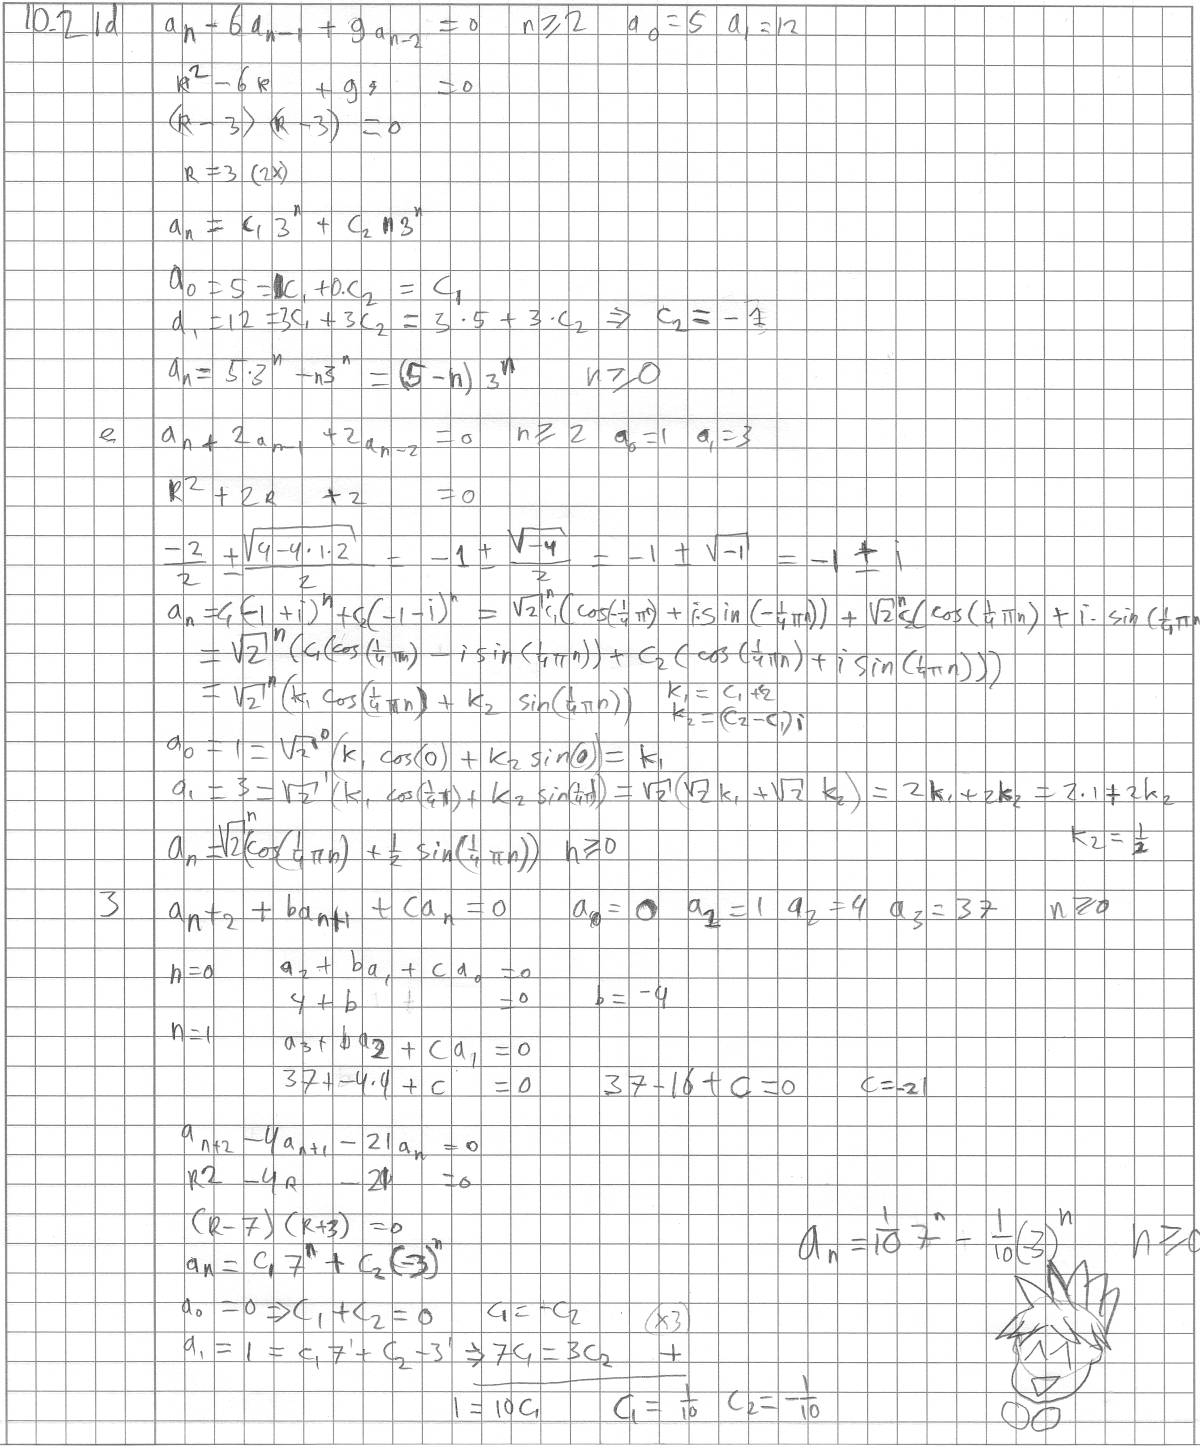 10.2 1d aₙ - 6aₙ₋₁ + 9aₙ₋₂ = 0 n ≥ 2 a₀ = 5 a₁ = 12
R² - 6R + 9 = 0
(R - 3)(R - 3) = 0
R = 3 (2x)
aₙ = c₁ 3ⁿ + c₂ n 3ⁿ
a₀ = 5 = 1c₁ + 0·c₂ = c₁
a₁ = 12 = 3c₁ + 3c₂ = 3·5 + 3·c₂ ⇒ c₂ = -1
aₙ = 5·3ⁿ - n3ⁿ = (5 - n) 3ⁿ n ≥ 0
e aₙ + 2aₙ₋₁ + 2aₙ₋₂ = 0 n ≥ 2 a₀ = 1 a₁ = 3
R² + 2R + 2 = 0
-2/2 ± √(4-4·1·2)/2 = -1 ± √-4/2 = -1 ± √-1 = -1 ± i
aₙ = c₁(-1+i)ⁿ + c₂(-1-i)ⁿ = √2ⁿc₁(cos(-¼πn) + i·sin(-¼πn)) + √2ⁿc₂(cos(¼πn) + i·sin(¼πn
= √2ⁿ(c₁(cos(¼πn) - i sin(¼πn)) + c₂(cos(¼πn) + i sin(¼πn)))
= √2ⁿ(k₁ cos(¼πn) + k₂ sin(¼πn)) k₁ = c₁ + c₂
k₂ = (c₂ - c₁)i
a₀ = 1 = √2⁰(k₁ cos(0) + k₂ sin(0)) = k₁
a₁ = 3 = √2¹(k₁ cos(¼π) + k₂ sin(¼π)) = √2(√2 k₁ + √2 k₂) = 2k₁ + 2k₂ = 2·1 + 2k₂
k₂ = ½
aₙ = √2ⁿ(cos(¼πn) + ½ sin(¼πn)) n ≥ 0
3 aₙ₊₂ + baₙ₊₁ + caₙ = 0 a₀ = 0 a₂ = 1 a₂ = 4 a₃ = 37 n ≥ 0
n=0 a₂ + ba₁ + ca₀ = 0
4 + b = 0 b = -4
n=1 a₃ + ba₂ + ca₁ = 0
37 + -4·4 + c = 0 37 - 16 + c = 0 c = -21
aₙ₊₂ - 4aₙ₊₁ - 21aₙ = 0
R2 - 4R - 21 = 0
(R-7)(R+3) = 0
aₙ = 1/10 7ⁿ - 1/10(-3)ⁿ n ≥ 0
aₙ = c₁ 7ⁿ + c₂(-3)ⁿ
a₀ = 0 ⇒ c₁ + c₂ = 0 c₁ = -c₂ (x3)
a₁ = 1 = c₁ 7¹ + c₂ -3¹ ⇒ 7c₁ = 3c₂ +
1 = 10c₁ c₁ = 1/10 c₂ = -1/10